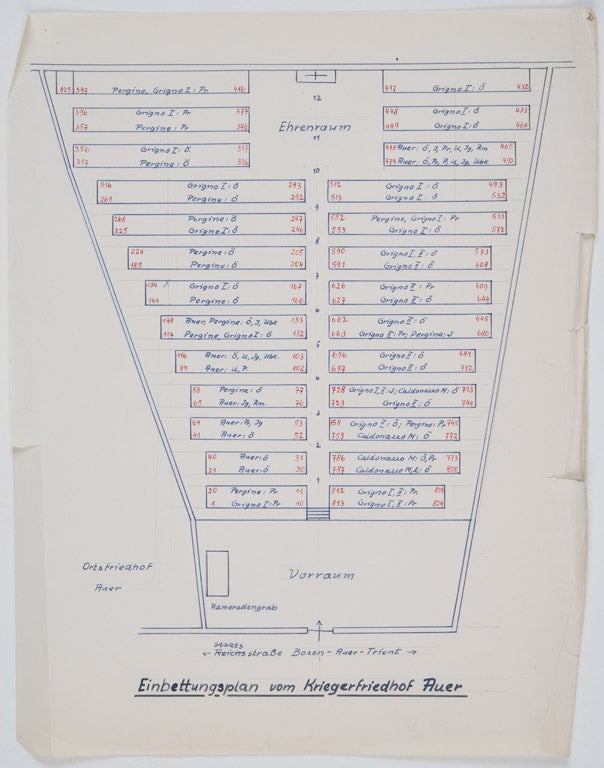 825 397 Pergine, Grigno I: Pr 416
417 Grigno I: Ö 432
12
396 Grigno I: Pr 377
357 Pergine: Pr 376
448 Grigno I: Ö 433
449 Grigno I: Ö 464
Ehrenraum
11
356 Grigno I: Ö 337
317 Pergine: Ö 336
Auer: Ö, J, Pr, U, Jg, Rm 465
479 Auer: Ö, Pr, P, U, Jg, Ubk 492
10
316 Grigno I: Ö 293
269 Pergine: Ö 292
512 Grigno I: Ö 493
513 Grigno I: Ö 532
9
268 Pergine: Ö 247
225 Grigno I: Ö 246
552 Pergine, Grigno I: Pr 533
553 Grigno I: Ö 572
8
224 Pergine: Ö 205
185 Pergine: Ö 204
590 Grigno I, II: Ö 573
591 Grigno II: Ö 608
7
184 Grigno I: Ö 167
149 Pergine: Ö 166
626 Grigno II: Pr 609
627 Grigno II: Ö 644
6
148 Auer, Pergine: Ö, J, Ubk 133
117 Pergine, Grigno I: Ö 132
662 Grigno II: Ö 645
663 Grigno II: Pr; Pergine: J 680
5
116 Auer: Ö, U, Jg, Ubk. 103
89 Auer: U, P. 102
696 Grigno II: Ö 681
697 Grigno II: Ö 712
4
88 Pergine: Ö 77
65 Auer: Jg, Rm. 76
728 Grigno I, II: J; Caldonazzo M: Ö 713
729 Grigno II: Ö 744
3
64 Auer: Pr, Jg 53
41 Auer: Ö 52
758 Grigno II: Ö; Pergine: Pr 745
759 Caldonazzo M: Ö 772
2
40 Auer: Ö 31
21 Auer: Ö 30
786 Caldonazzo M: Ö, Pr 773
787 Caldonazzo M, R: Ö 800
1
20 Pergine: Pr 11
1 Grigno I: Pr 10
812 Grigno I, II: Pr. 801
813 Grigno I, II: Pr 824
Ortsfriedhof
Auer
Vorraum
Kameradengrab
Staats
← Reichsstraße Bozen - Auer - Trient →
Einbettungsplan vom Kriegerfriedhof Auer